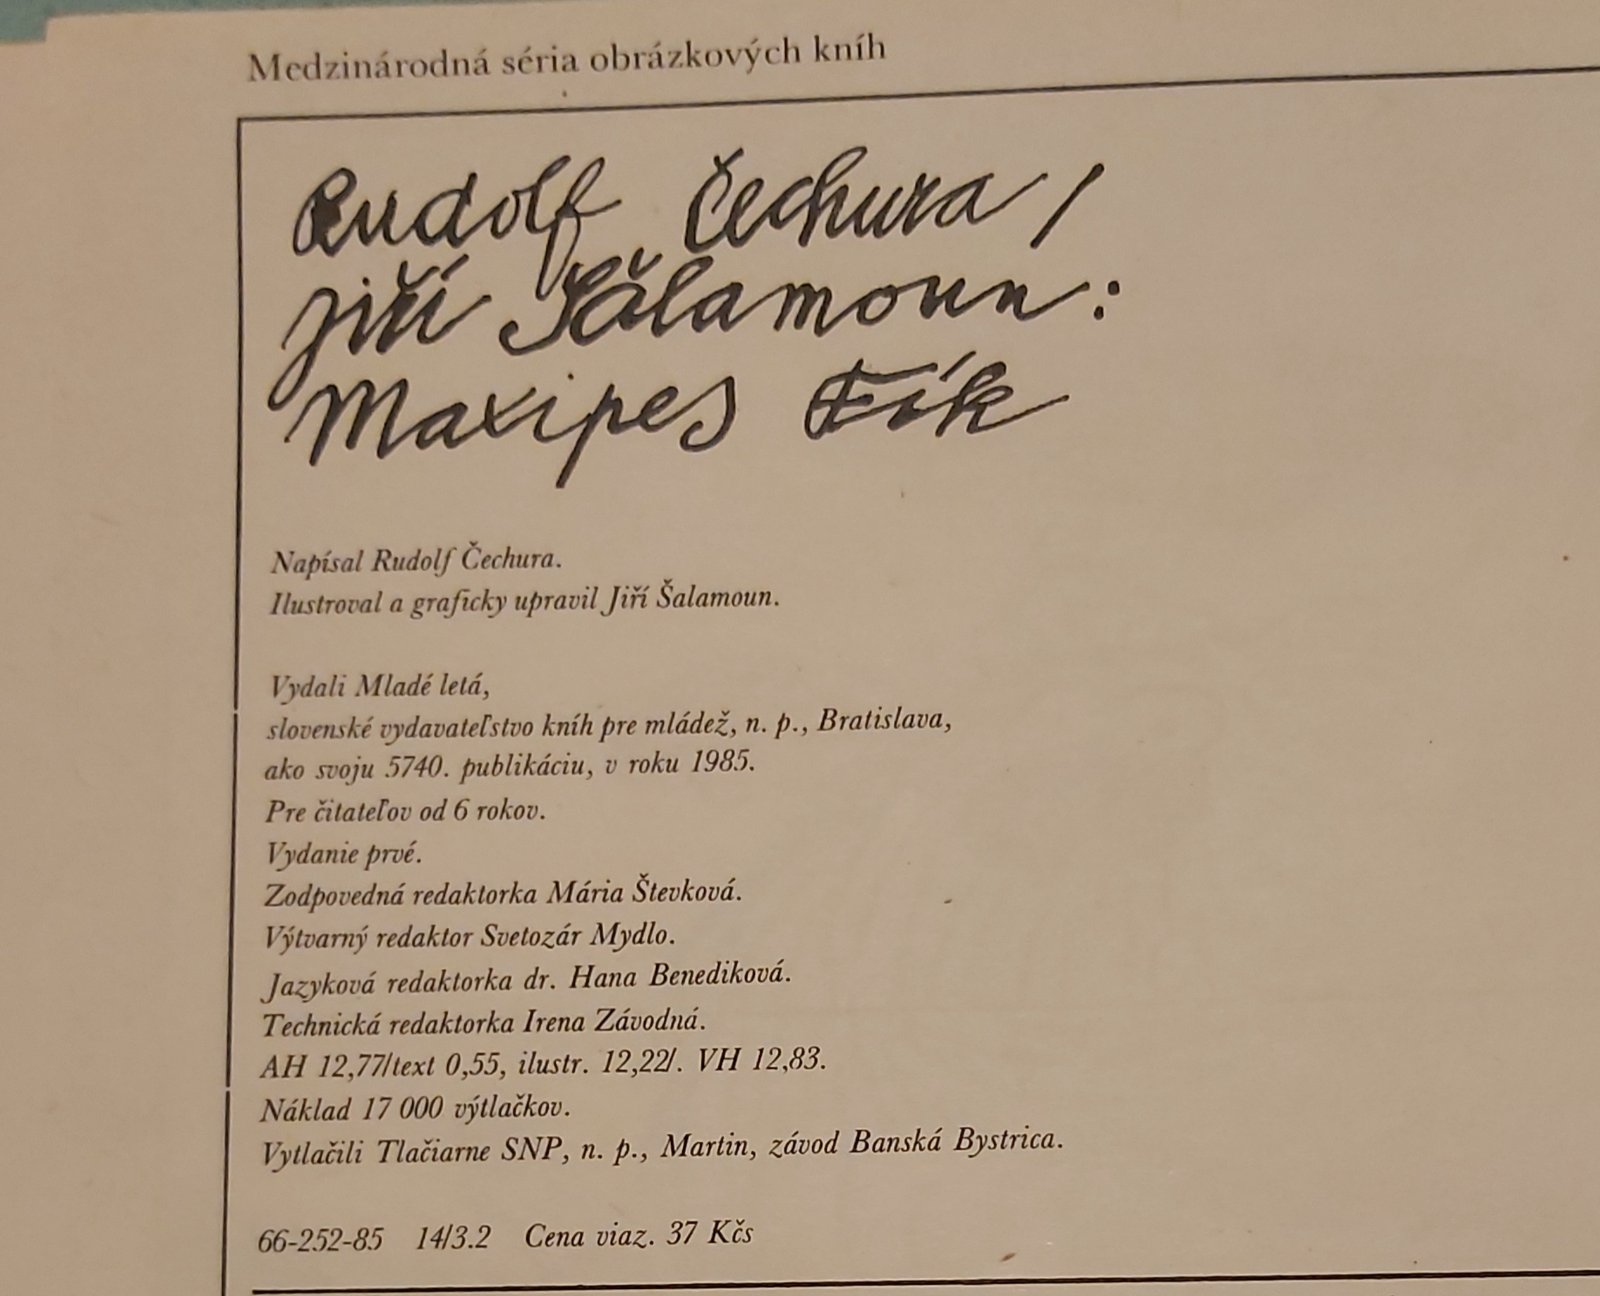 Medzinárodná séria obrázkových kníh
Rudolf Čechura /
Jiří Šalamoun:
Maxipes Fík
Napísal Rudolf Čechura.
Ilustroval a graficky upravil Jiří Šalamoun.
Vydali Mladé letá,
slovenské vydavateľstvo kníh pre mládež, n. p., Bratislava,
ako svoju 5740. publikáciu, v roku 1985.
Pre čitateľov od 6 rokov.
Vydanie prvé.
Zodpovedná redaktorka Mária Števková.
Výtvarný redaktor Svetozár Mydlo.
Jazyková redaktorka dr. Hana Benediková.
Technická redaktorka Irena Závodná.
AH 12,77/text 0,55, ilustr. 12,22/. VH 12,83.
Náklad 17 000 výtlačkov.
Vytlačili Tlačiarne SNP, n. p., Martin, závod Banská Bystrica.
66-252-85 14/3.2 Cena viaz. 37 Kčs